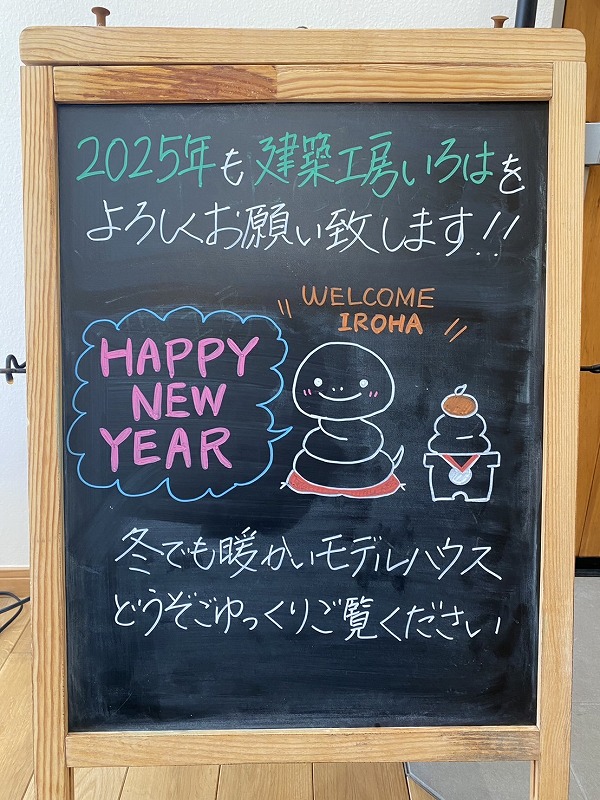 2025年も建築工房いろはを
よろしくお願い致します!!
WELCOME
IROHA
HAPPY
NEW
YEAR
冬でも暖かいモデルハウス
どうぞごゆっくりご覧ください